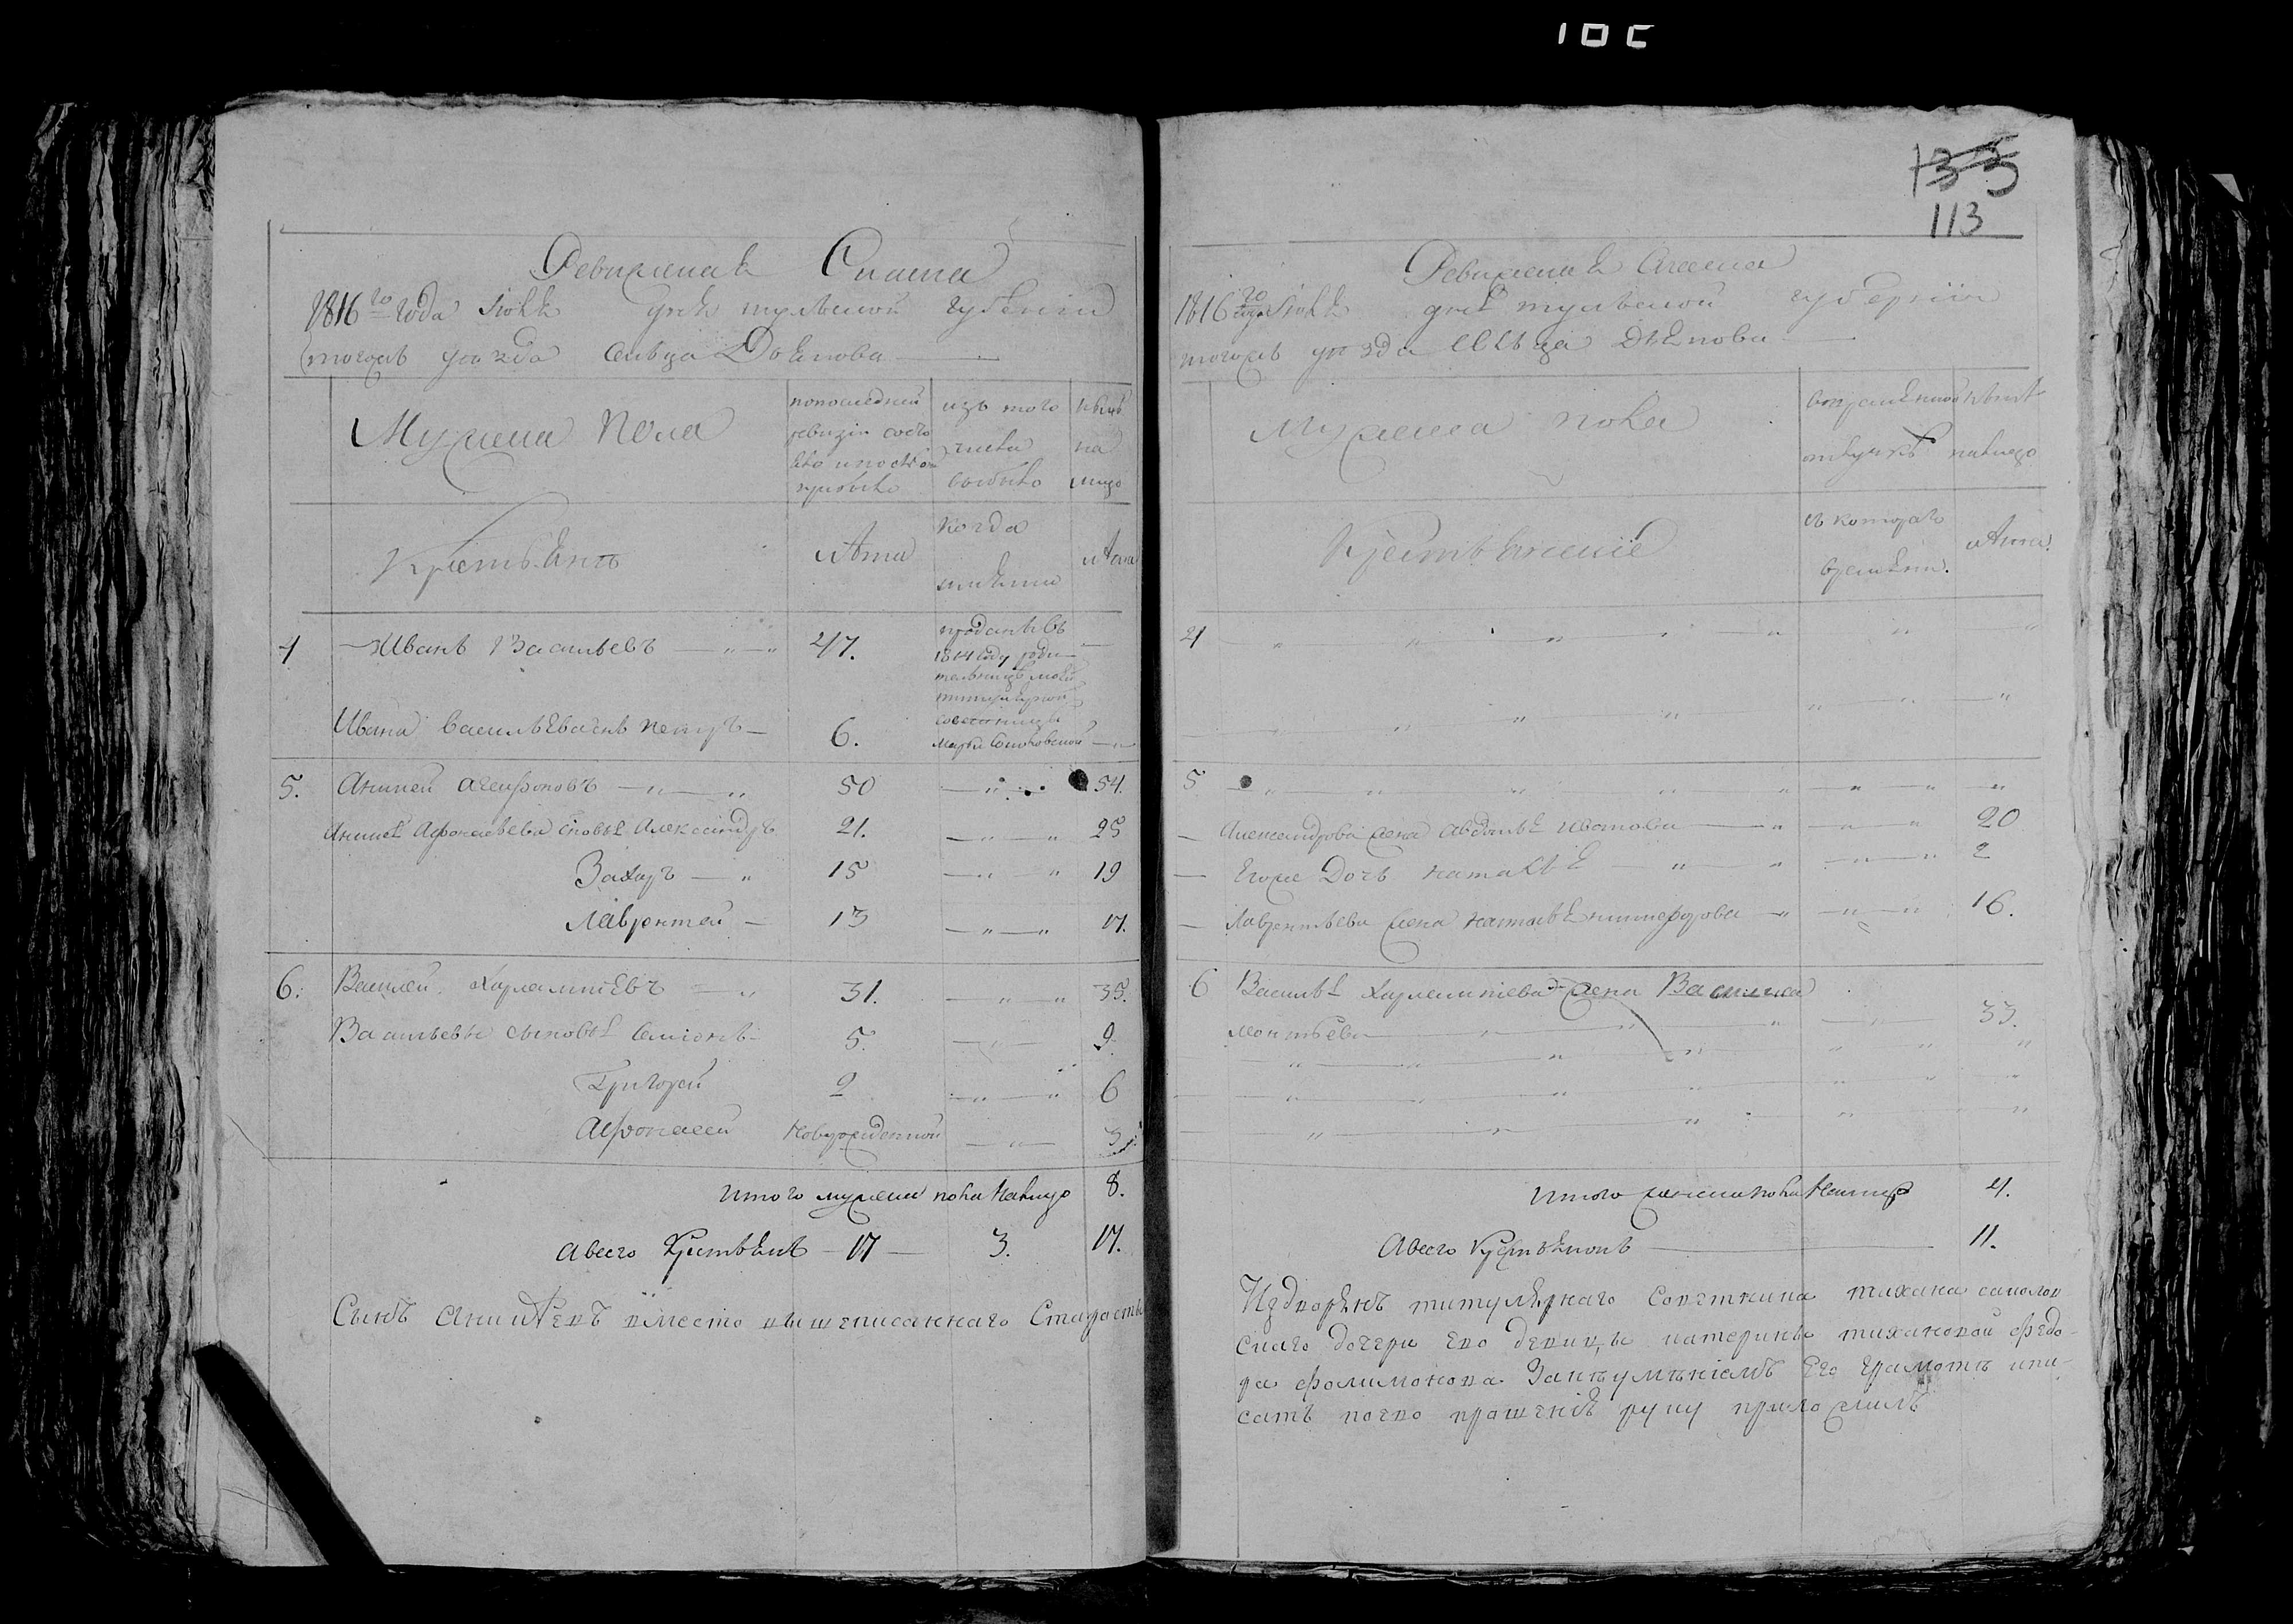 10C
133
113
Ревижская Сказка
1816го года Июля дня Тульской губернии
тогожъ уезда сельца Доенова
Мужеска пола
по последней
ревизіи состо
яло и после
прибыло
изъ того
числа
выбыло
ныне
на
лицо
Крестьянъ
лета
когда
имянно
лета
4 Иванъ Васильевъ 47.
проданъ въ
1814 году роди
тельнице моей
титулярной
советницы
Марьи
Ивана Васильева сынъ Петръ 6.
5. Аникей Агафоновъ 50 54.
сыновья Александръ 21. 25
Захаръ 15 19
Лаврентей 13 17.
6. Василей Харлампіевъ 31. 35.
Васильевы сыновья Семіонъ 5. 9.
Григорей 2 6
Афонасей новорожденной 3.
Итого мужеска пола налицо 8.
А всего Крестьянъ 17 3. 17.
Сынъ вместо вышеписаннаго Старосты
Ревижская Сказка
1816го года Июля дня Тульской губерніи
тогожъ уезда сельца Доенова
Мужеска пола
во временной
отлучке
ныне
налицо
Крестьянскіе
съ котораго
времени.
лета.
4
5
Александрова жена Авдотья Иванова 20
Егоже Дочь Наталья 2
Лаврентьева жена Наталья Никифорова 16.
6 Василья Харлампіева жена Василиса
33.
Итого женска пола налицо 4.
А всего Крестьянокъ 11.
титулярнаго советника Тихана
скаго дочери ево девицы Катерины Тихановой Федо-
ра Фолимонова За неуменіемъ Его грамоте и пи-
сать по ево прошенію руку приложилъ